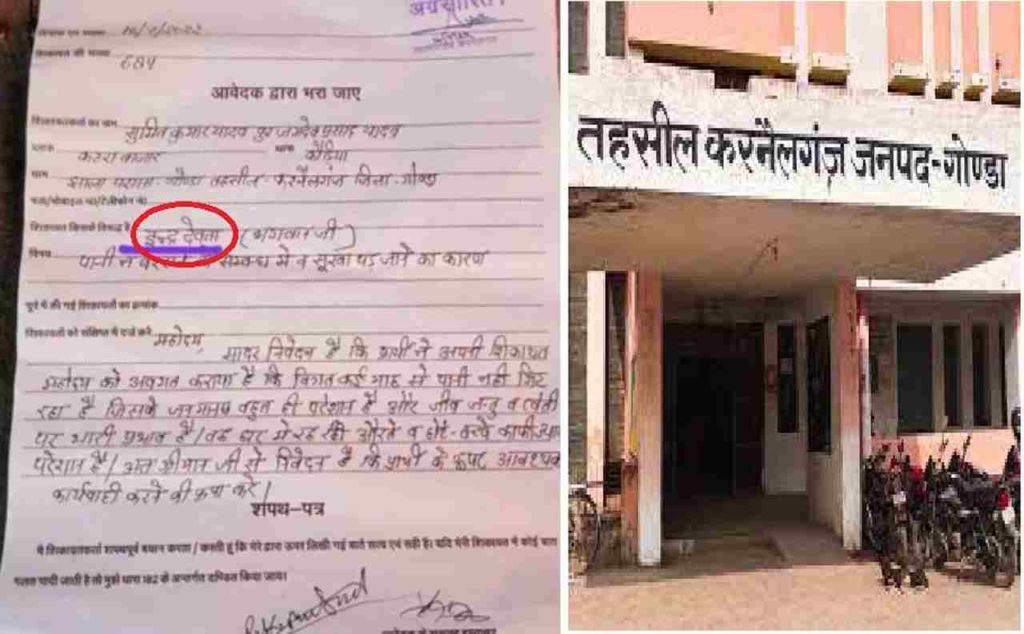 अग्रसारित
शिकायत की संख्या 684
आवेदक द्वारा भरा जाए
शिकायतकर्ता का नाम सुमित कुमार यादव पुत्र जगदेव प्रसाद यादव
कटरा बाजार थाना कौड़िया
ग्राम झाला परगना गोण्डा तहसील करनैलगंज जिला गोण्डा
शिकायत किसके विरूद्ध है इन्द्र देवता (भगवान जी)
विषय पानी न सम्बन्ध में व सूखा पड़ जाने का कारण
पूर्व में की गई शिकायतों का क्रमांक
शिकायतों को संक्षिप्त में दर्ज करें महोदय,
सादर निवेदन है कि प्रार्थी ने अपनी शिकायत
महोदय को अवगत कराया है कि विगत कई माह से पानी नही गिर
रहा है जिससे जनमानस बहुत ही परेशान है और जीव जन्तु व खेती
पर भारी प्रभाव है। घर में रह रही औरते व छोटे-बच्चे काफी
परेशान है। अतः श्रीमान जी से निवेदन है कि प्रार्थी के ऊपर आवश्यक
कार्यवाही करने की कृपा करे।
शपथ-पत्र
मै शिकायतकर्ता शपथपूर्व बयान करता / करती हूं कि मेरे द्वारा ऊपर लिखी गई बाते सत्य एवं सही है। यदि मेरी शिकायत मे कोई बात
गलत पायी जाती है तो मुझे धारा 182 के अन्तर्गत दण्डित किया जाय।
तहसील करनैलगंज़ जनपद-गोण्डा